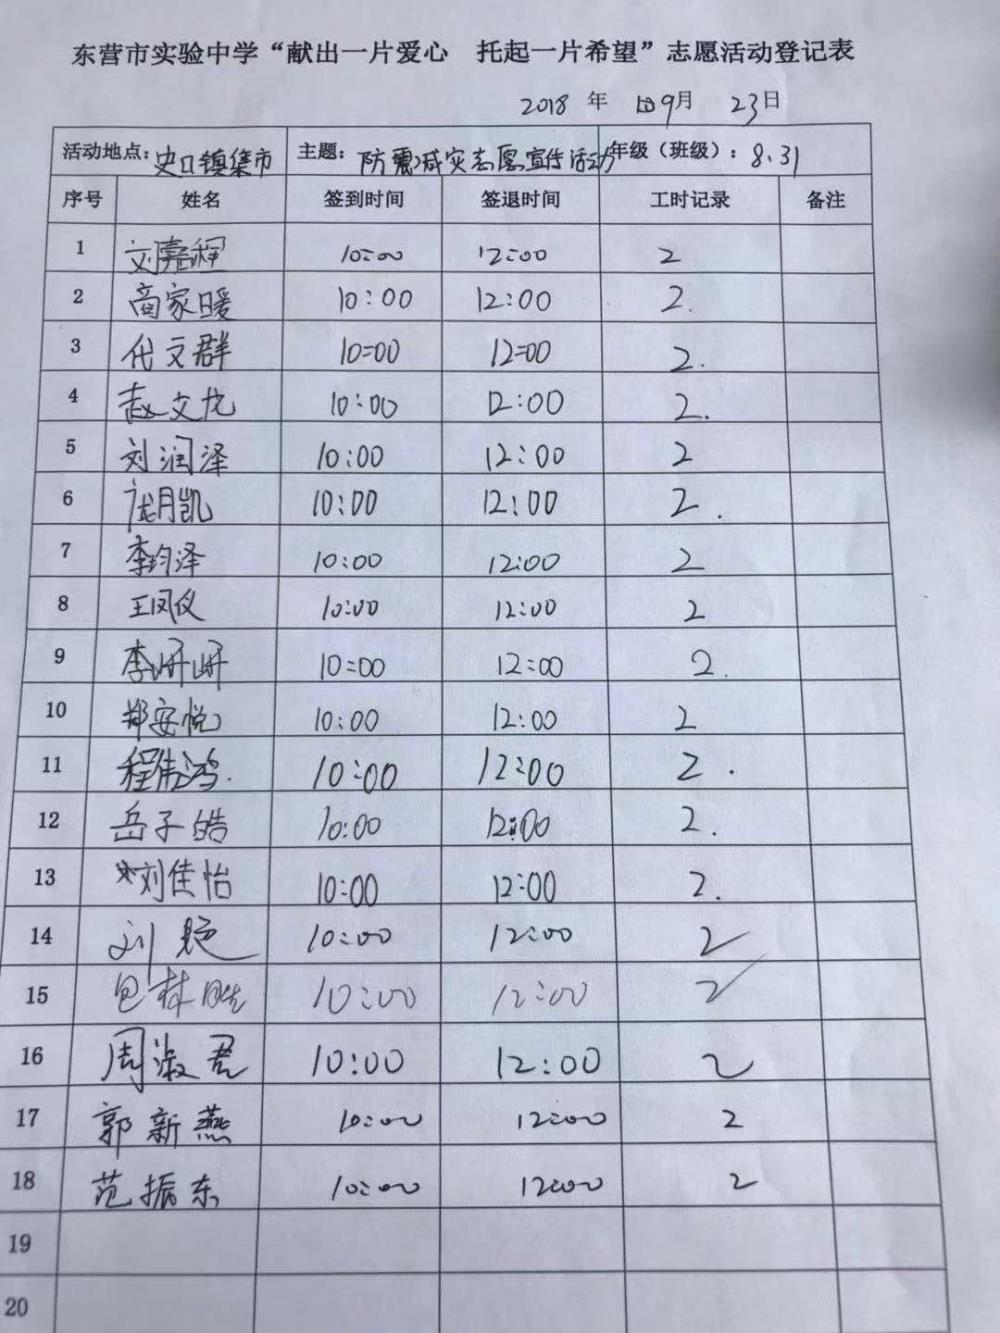 东营市实验中学“献出一片爱心 托起一片希望”志愿活动登记表
2018 年 9月 23日
活动地点：史口镇集市 主题：防震减灾志愿宣传活动 年级（班级）：8.31
序号 姓名 签到时间 签退时间 工时记录 备注
1 刘嘉辉 10:00 12:00 2
2 商家暖 10:00 12:00 2.
3 代文群 10:00 12:00 2.
4 赵文龙 10:00 12:00 2.
5 刘润泽 10:00 12:00 2
6 庞月凯 10:00 12:00 2.
7 李钧泽 10:00 12:00 2
8 王凤仪 10:00 12:00 2
9 李岍岍 10:00 12:00 2.
10 郑安悦 10:00 12:00 2
11 程伟鸿. 10:00 12:00 2.
12 岳子皓 10:00 12:00 2.
13 刘佳怡 10:00 12:00 2.
14 刘 10:00 12:00 2
15 林 10:00 12:00 2
16 周淑君 10:00 12:00 2
17 郭新燕 10:00 12:00 2
18 范振东 10:00 12:00 2
19
20